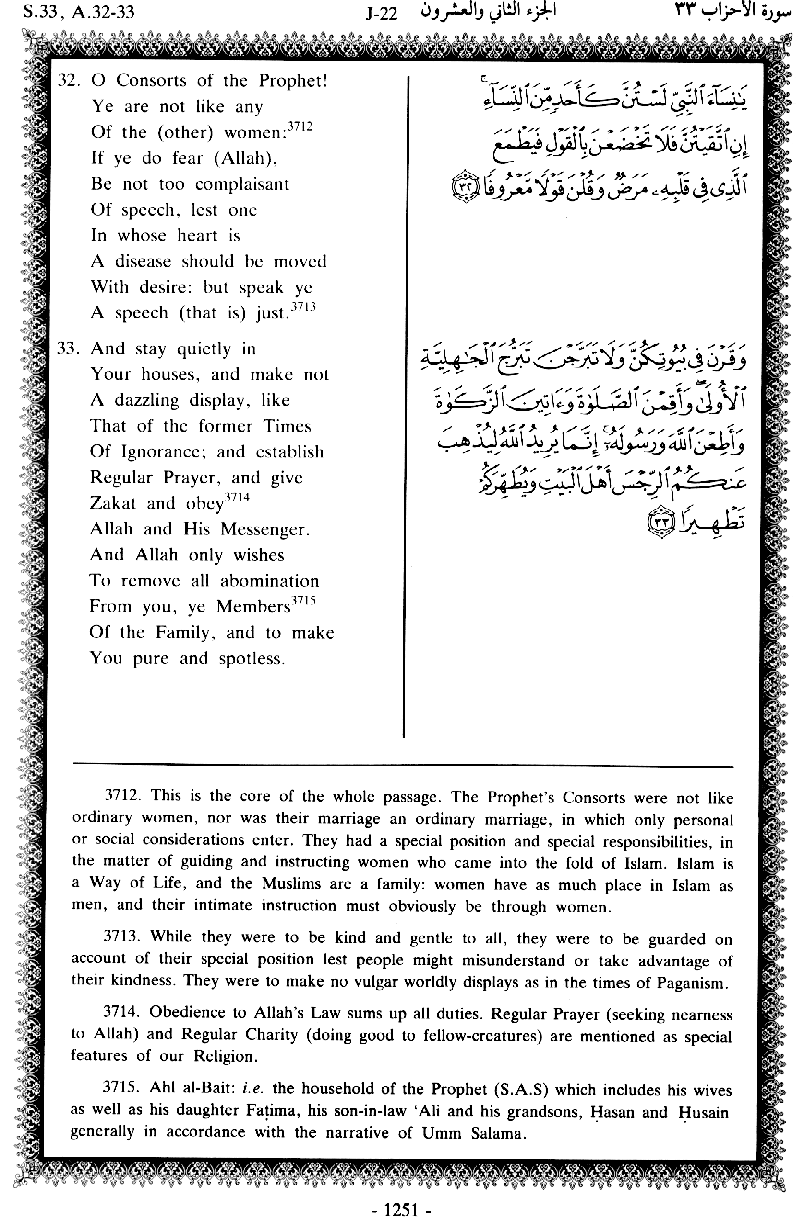 S.33, A.32-33
J-22
الجزء الثاني والعشرون
سورة الأحزاب ٣٣
32. O Consorts of the Prophet!
Ye are not like any
Of the (other) women:3712
If ye do fear (Allah),
Be not too complaisant
Of speech, lest one
In whose heart is
A disease should be moved
With desire: but speak ye
A speech (that is) just.3713
33. And stay quietly in
Your houses, and make not
A dazzling display, like
That of the former Times
Of Ignorance; and establish
Regular Prayer, and give
Zakat and obey3714
Allah and His Messenger.
And Allah only wishes
To remove all abomination
From you, ye Members3715
Of the Family, and to make
You pure and spotless.
يَٰنِسَآءَ ٱلنَّبِيِّ لَسْتُنَّ كَأَحَدٍ مِّنَ ٱلنِّسَآءِ ۚ
إِنِ ٱتَّقَيْتُنَّ فَلَا تَخْضَعْنَ بِٱلْقَوْلِ فَيَطْمَعَ
ٱلَّذِى فِى قَلْبِهِۦ مَرَضٌ وَقُلْنَ قَوْلًا مَّعْرُوفًا ٣٢
وَقَرْنَ فِى بُيُوتِكُنَّ وَلَا تَبَرَّجْنَ تَبَرُّجَ ٱلْجَٰهِلِيَّةِ
ٱلْأُولَىٰ ۖ وَأَقِمْنَ ٱلصَّلَوٰةَ وَءَاتِينَ ٱلزَّكَوٰةَ
وَأَطِعْنَ ٱللَّهَ وَرَسُولَهُۥٓ ۚ إِنَّمَا يُرِيدُ ٱللَّهُ لِيُذْهِبَ
عَنكُمُ ٱلرِّجْسَ أَهْلَ ٱلْبَيْتِ وَيُطَهِّرَكُمْ
تَطْهِيرًا ٣٣
3712. This is the core of the whole passage. The Prophet's Consorts were not like
ordinary women, nor was their marriage an ordinary marriage, in which only personal
or social considerations enter. They had a special position and special responsibilities, in
the matter of guiding and instructing women who came into the fold of Islam. Islam is
a Way of Life, and the Muslims are a family: women have as much place in Islam as
men, and their intimate instruction must obviously be through women.
3713. While they were to be kind and gentle to all, they were to be guarded on
account of their special position lest people might misunderstand or take advantage of
their kindness. They were to make no vulgar worldly displays as in the times of Paganism.
3714. Obedience to Allah's Law sums up all duties. Regular Prayer (seeking nearness
to Allah) and Regular Charity (doing good to fellow-creatures) are mentioned as special
features of our Religion.
3715. Ahl al-Bait: i.e. the household of the Prophet (S.A.S) which includes his wives
as well as his daughter Faṭima, his son-in-law ‘Ali and his grandsons, Ḥasan and Ḥusain
generally in accordance with the narrative of Umm Salama.
- 1251 -